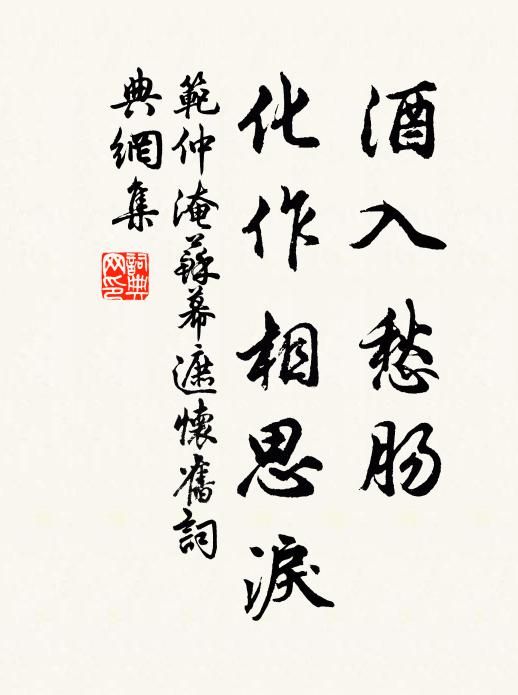 酒入愁肠
化作相思淚
範仲淹蘇幕遮懷舊詞
典網集
詞典
网印